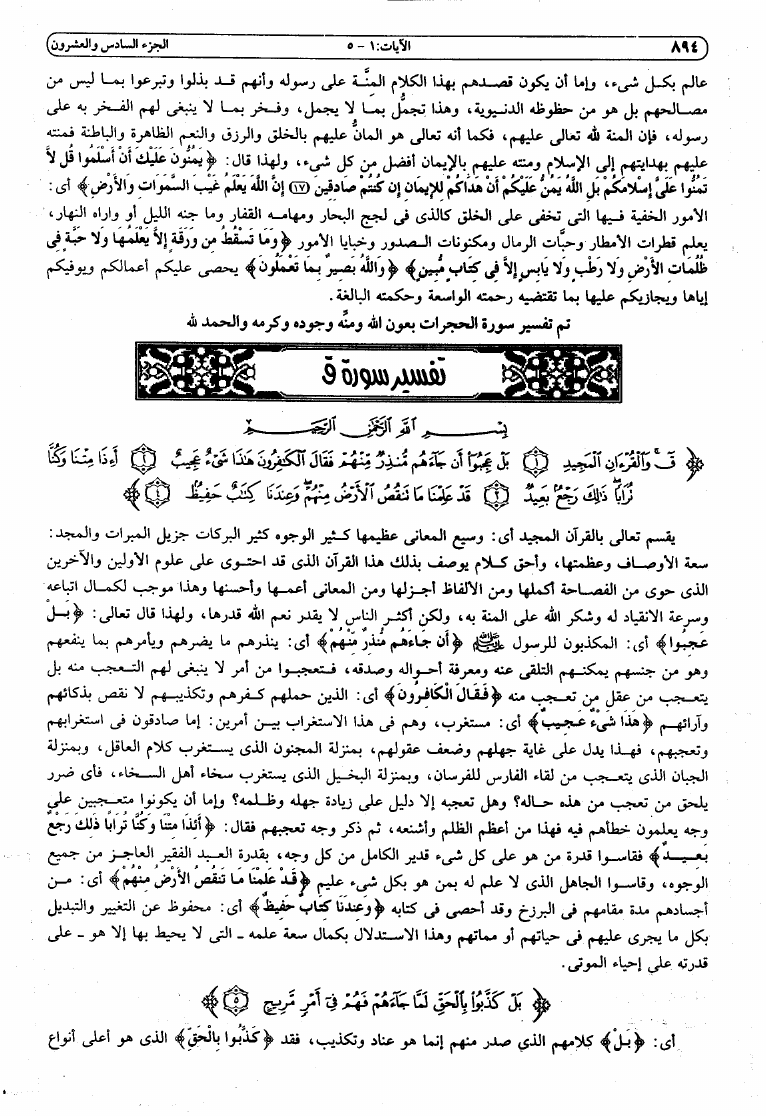 ٨٩٤ الآيات: ١ - ٥ الجزء السادس والعشرون
عالم بكل شىء، وإما أن يكون قصدهم بهذا الكلام المنَّة على رسوله وأنهم قد بذلوا وتبرعوا بما ليس من
مصالحهم بل هو من حظوظه الدنيوية، وهذا تجمُّل بما لا يجمل، وفخر بما لا ينبغى لهم الفخر به على
رسوله، فإن المنة لله تعالى عليهم، فكما أنه تعالى هو المانُّ عليهم بالخلق والرزق والنعم الظاهرة والباطنة فمنته
عليهم بهدايتهم إلى الإسلام ومنته عليهم بالإيمان أفضل من كل شىء، ولهذا قال: ﴿يَمُنُّونَ عَلَيْكَ أَنْ أَسْلَمُوا قُل لاَّ
تَمُنُّوا عَلَيَّ إِسْلامَكُم بَلِ اللَّهُ يَمُنُّ عَلَيْكُمْ أَنْ هَدَاكُمْ لِلإِيمَانِ إِن كُنتُمْ صَادِقِينَ (١٧) إِنَّ اللَّهَ يَعْلَمُ غَيْبَ السَّمَوَاتِ وَالأَرْضِ﴾ أى:
الأمور الخفية فيها التى تخفى على الخلق كالذى فى لجج البحار ومهامه القفار وما جنه الليل أو واراه النهار،
يعلم قطرات الأمطار وحبَّات الرمال ومكنونات الصدور وخبايا الأمور ﴿وَمَا تَسْقُطُ مِن وَرَقَةٍ إِلاَّ يَعْلَمُهَا وَلا حَبَّةٍ فِى
ظُلُمَاتِ الأَرْضِ وَلا رَطْبٍ وَلا يَابِسٍ إِلاَّ فِى كِتَابٍ مُّبِينٍ﴾ ﴿وَاللَّهُ بَصِيرٌ بِمَا تَعْمَلُونَ﴾ يحصى عليكم أعمالكم ويوفيكم
إياها ويجازيكم عليها بما تقتضيه رحمته الواسعة وحكمته البالغة.
تم تفسير سورة الحجرات بعون الله ومنِّه وجوده وكرمه والحمد لله
تفسير سورة ق
بِسْمِ اللَّهِ الرَّحْمَٰنِ الرَّحِيمِ
﴿قٓ ۚ وَالْقُرْءَانِ الْمَجِيدِ (١) بَلْ عَجِبُوٓا أَن جَآءَهُم مُّنذِرٌ مِّنْهُمْ فَقَالَ الْكَٰفِرُونَ هَٰذَا شَىْءٌ عَجِيبٌ (٢) أَءِذَا مِتْنَا وَكُنَّا
تُرَابًا ۖ ذَٰلِكَ رَجْعٌۢ بَعِيدٌ (٣) قَدْ عَلِمْنَا مَا تَنقُصُ الْأَرْضُ مِنْهُمْ ۖ وَعِندَنَا كِتَٰبٌ حَفِيظٌۢ (٤)﴾
يقسم تعالى بالقرآن المجيد أى: وسيع المعانى عظيمها كثير الوجوه كثير البركات جزيل المبرات والمجد:
سعة الأوصاف وعظمتها، وأحق كلام يوصف بذلك هذا القرآن الذى قد احتوى على علوم الأولين والآخرين
الذى حوى من الفصاحة أكملها ومن الألفاظ أجزلها ومن المعانى أعمها وأحسنها وهذا موجب لكمال اتباعه
وسرعة الانقياد له وشكر الله على المنة به، ولكن أكثر الناس لا يقدر نعم الله قدرها، ولهذا قال تعالى: ﴿بَلْ
عَجِبُوا﴾ أى: المكذبون للرسول ﷺ ﴿أَن جَاءَهُم مُّنذِرٌ مِّنْهُمْ﴾ أى: ينذرهم ما يضرهم ويأمرهم بما ينفعهم
وهو من جنسهم يمكنهم التلقى عنه ومعرفة أحواله وصدقه، فتعجبوا من أمر لا ينبغى لهم التعجب منه بل
يتعجب من عقل من تعجب منه ﴿فَقَالَ الْكَافِرُونَ﴾ أى: الذين حملهم كفرهم وتكذيبهم لا نقص بذكائهم
وآرائهم ﴿هَذَا شَىْءٌ عَجِيبٌ﴾ أى: مستغرب، وهم فى هذا الاستغراب بين أمرين: إما صادقون فى استغرابهم
وتعجبهم، فهذا يدل على غاية جهلهم وضعف عقولهم، بمنزلة المجنون الذى يستغرب كلام العاقل، وبمنزلة
الجبان الذى يتعجب من لقاء الفارس للفرسان، وبمنزلة البخيل الذى يستغرب سخاء أهل السخاء، فأى ضرر
يلحق من تعجب من هذه حاله؟ وهل تعجبه إلا دليل على زيادة جهله وظلمه؟ وإما أن يكونوا متعجبين على
وجه يعلمون خطأهم فيه فهذا من أعظم الظلم وأشنعه، ثم ذكر وجه تعجبهم فقال: ﴿أَئِذَا مِتْنَا وَكُنَّا تُرَابًا ذَلِكَ رَجْعٌ
بَعِيدٌ﴾ فقاسوا قدرة من هو على كل شىء قدير الكامل من كل وجه، بقدرة العبد الفقير العاجز من جميع
الوجوه، وقاسوا الجاهل الذى لا علم له بمن هو بكل شىء عليم ﴿قَدْ عَلِمْنَا مَا تَنقُصُ الأَرْضُ مِنْهُمْ﴾ أى: من
أجسادهم مدة مقامهم فى البرزخ وقد أحصى فى كتابه ﴿وَعِندَنَا كِتَابٌ حَفِيظٌ﴾ أى: محفوظ عن التغيير والتبديل
بكل ما يجرى عليهم فى حياتهم أو مماتهم وهذا الاستدلال بكمال سعة علمه ـ التى لا يحيط بها إلا هو ـ على
قدرته على إحياء الموتى.
﴿بَلْ كَذَّبُوا بِالْحَقِّ لَمَّا جَآءَهُمْ فَهُمْ فِىٓ أَمْرٍ مَّرِيجٍ (٥)﴾
أى: ﴿بَلْ﴾ كلامهم الذي صدر منهم إنما هو عناد وتكذيب، فقد ﴿كَذَّبُوا بِالْحَقِّ﴾ الذى هو أعلى أنواع